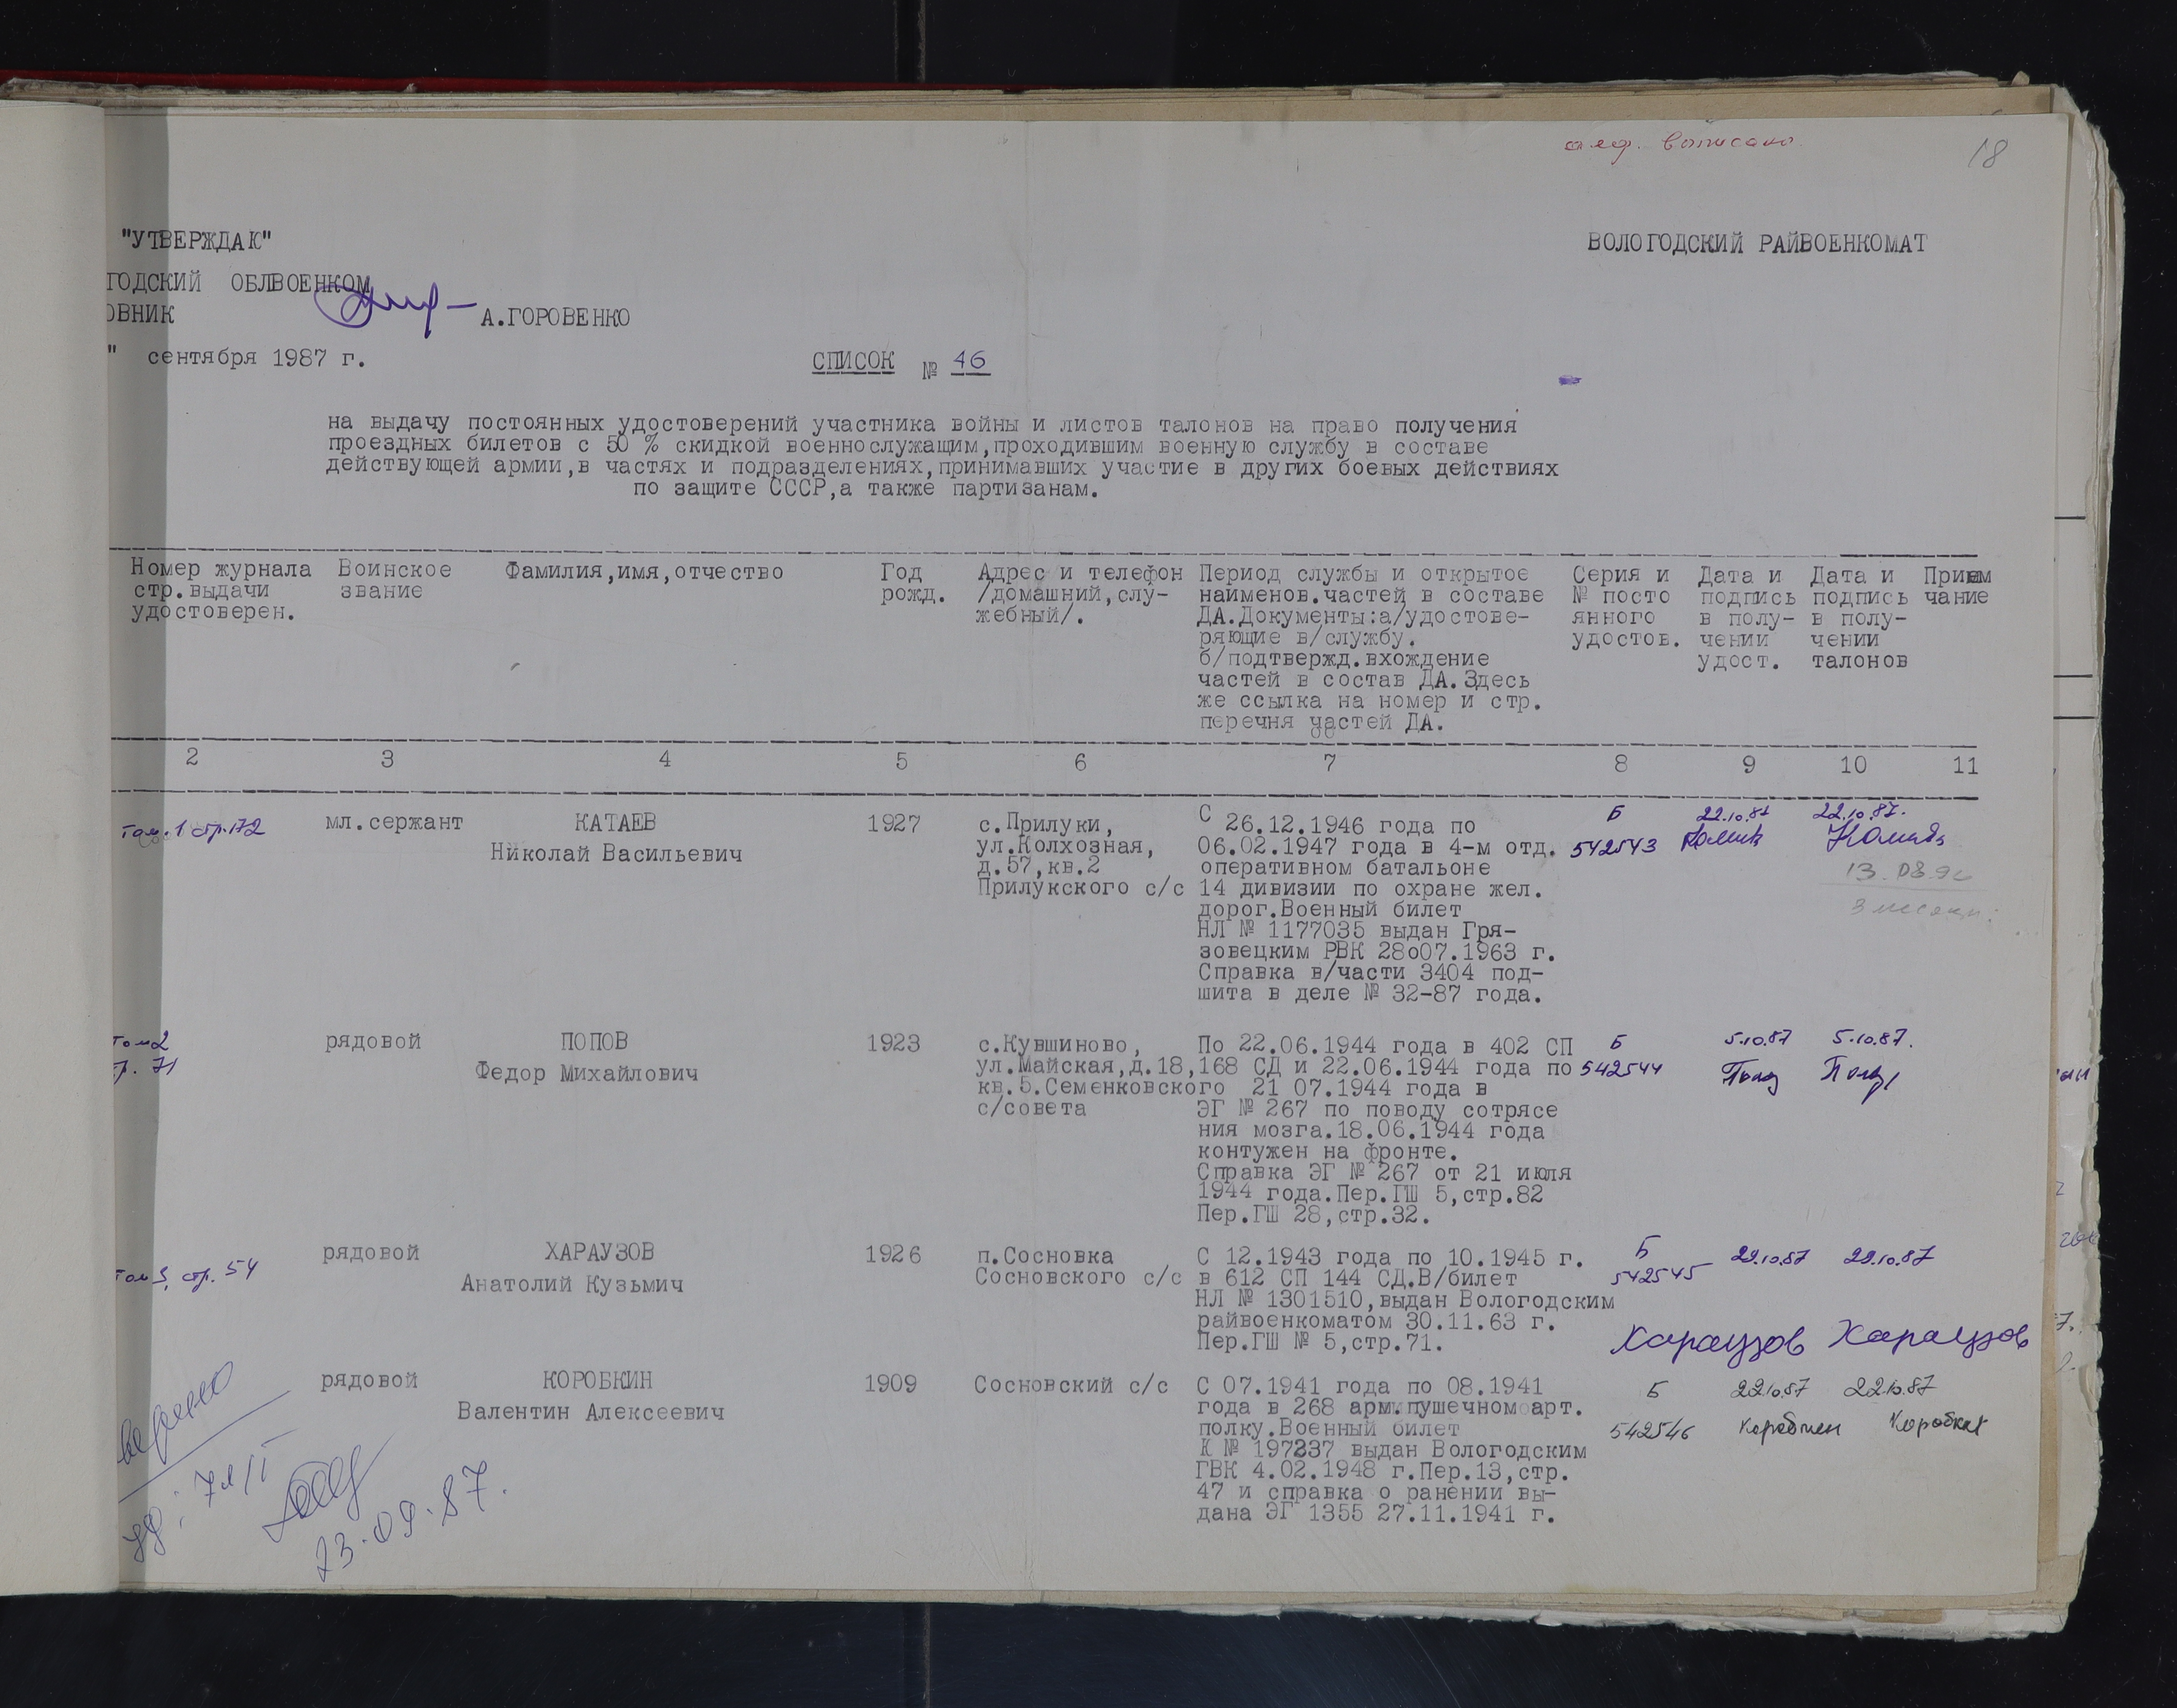 алф. выписано.
18
"УТВЕРЖДАЮ"
ВОЛОГОДСКИЙ РАЙВОЕНКОМАТ
ГОДСКИЙ ОБЛВОЕНКОМ
ОВНИК
А.ГОРОВЕНКО
" сентября 1987 г.
СПИСОК № 46
на выдачу постоянных удостоверений участника войны и листов талонов на право получения
проездных билетов с 50 % скидкой военнослужащим,проходившим военную службу в составе
действующей армии,в частях и подразделениях,принимавших участие в других боевых действиях
по защите СССР,а также партизанам.
Номер журнала
стр.выдачи
удостоверен.
Воинское
звание
Фамилия,имя,отчество
Год
рожд.
Адрес и телефон
/домашний,слу-
жебный/.
Период службы и открытое
наименов.частей в составе
ДА.Документы:а/удостове-
ряющие в/службу.
б/подтвержд.вхождение
частей в состав ДА.Здесь
же ссылка на номер и стр.
перечня частей ДА.
Серия и
№ посто
янного
удостов.
Дата и
подпись
в полу-
чении
удост.
Дата и
подпись
в полу-
чении
талонов
Прием
чание
2 3 4 5 6 7 8 9 10 11
том.1 стр.172
мл.сержант
КАТАЕВ
Николай Васильевич
1927
с.Прилуки,
ул.Колхозная,
д.57,кв.2
Прилукского с/с
С 26.12.1946 года по
06.02.1947 года в 4-м отд.
оперативном батальоне
14 дивизии по охране жел.
дорог.Военный билет
НЛ № 1177035 выдан Гря-
зовецким РВК 28о07.1963 г.
Справка в/части 3404 под-
шита в деле № 32-87 года.
Б
542543
22.10.87
22.10.87.
13.08.9
3 месяц
том2
р. 71
рядовой
ПОПОВ
Федор Михайлович
1923
с.Кувшиново,
ул.Майская,д.18,
кв.5.Семенковского
с/совета
По 22.06.1944 года в 402 СП
168 СД и 22.06.1944 года по
21 07.1944 года в
ЭГ № 267 по поводу сотрясе
ния мозга.18.06.1944 года
контужен на фронте.
Справка ЭГ № 267 от 21 июля
1944 года.Пер.ГШ 5,стр.82
Пер.ГШ 28,стр.32.
Б
542544
5.10.87
5.10.87.
том 3, стр. 54
рядовой
ХАРАУЗОВ
Анатолий Кузьмич
1926
п.Сосновка
Сосновского с/с
С 12.1943 года по 10.1945 г.
в 612 СП 144 СД.В/билет
НЛ № 1301510,выдан Вологодским
райвоенкоматом 30.11.63 г.
Пер.ГШ № 5,стр.71.
Б
542545
29.10.87
29.10.87
Хараузов Хараузов
рядовой
КОРОБКИН
Валентин Алексеевич
1909
Сосновский с/с
С 07.1941 года по 08.1941
года в 268 арм.пушечном арт.
полку.Военный билет
К № 197237 выдан Вологодским
ГВК 4.02.1948 г.Пер.13,стр.
47 и справка о ранении вы-
дана ЭГ 1355 27.11.1941 г.
Б
542546
22.10.87
22.10.87
Коробкин
верно
23.09.87.